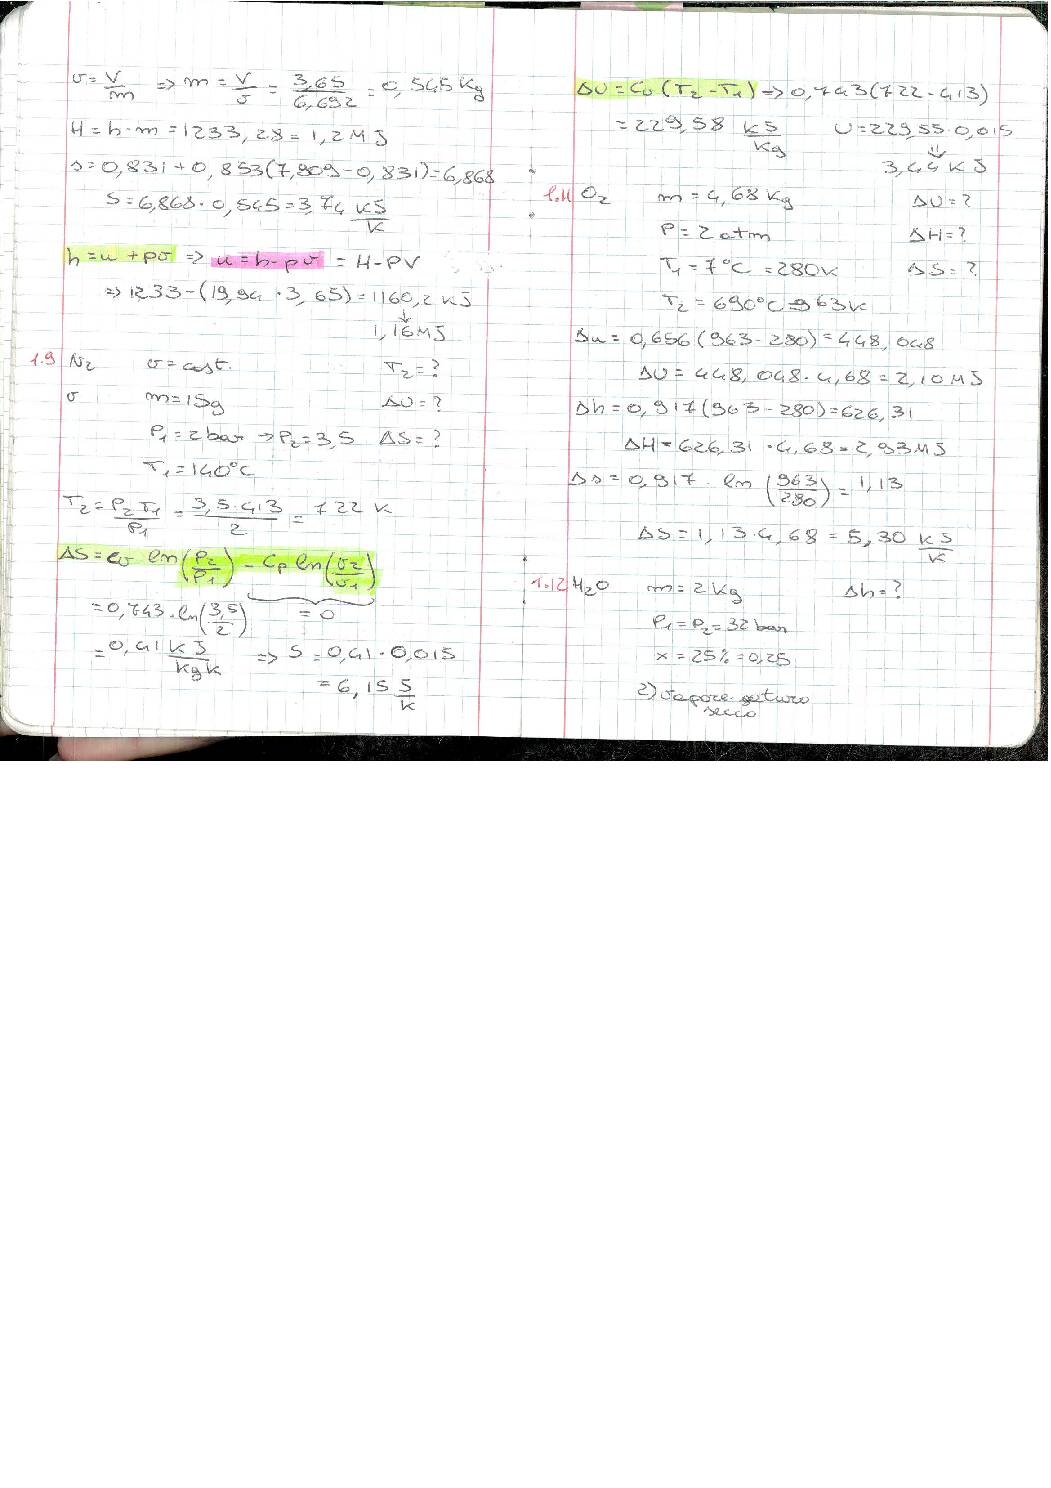 v = V/m ⇒ m = V/v = 3,65/6,692 = 0,545 kg
H = h·m = 1233,28 = 1,2 MJ
s = 0,831 + 0,853(7,909 - 0,831) = 6,868
S = 6,868 · 0,545 = 3,74 kJ/K
h = u + pv ⇒ u = h - pv = H - PV
⇒ 1233 - (19,94 · 3,65) = 1160,2 kJ
↓
1,16 MJ
1.9 N2 v = cost. T2 = ?
v m = 15g ΔU = ?
P1 = 2 bar → P2 = 3,5 ΔS = ?
T1 = 140°C
T2 = P2 T1/P1 = 3,5·413/2 = 722 K
ΔS = cv ln(P2/P1) - cp ln(v2/v1)
= 0,743 · ln(3,5/2) = 0
= 0,41 kJ/kg K ⇒ S = 0,41 · 0,015
= 6,15 J/K
ΔU = Cv (T2 - T1) → 0,743(722 - 413)
= 229,58 kJ/kg U = 229,55 · 0,015
⇓
3,44 kJ
1.11 O2 m = 4,68 kg ΔU = ?
P = 2 atm ΔH = ?
T1 = 7°C = 280K ΔS = ?
T2 = 690°C → 963K
Δu = 0,656 (963 - 280) = 448,048
ΔU = 448,048 · 4,68 = 2,10 MJ
Δh = 0,917 (963 - 280) = 626,31
ΔH = 626,31 · 4,68 = 2,93 MJ
Δs = 0,917 · ln (963/280) = 1,13
ΔS = 1,13 · 4,68 = 5,30 kJ/K
1.12 H2O m = 2 kg Δh = ?
P1 = P2 = 32 bar
x = 25% = 0,25
2) vapore saturo
secco